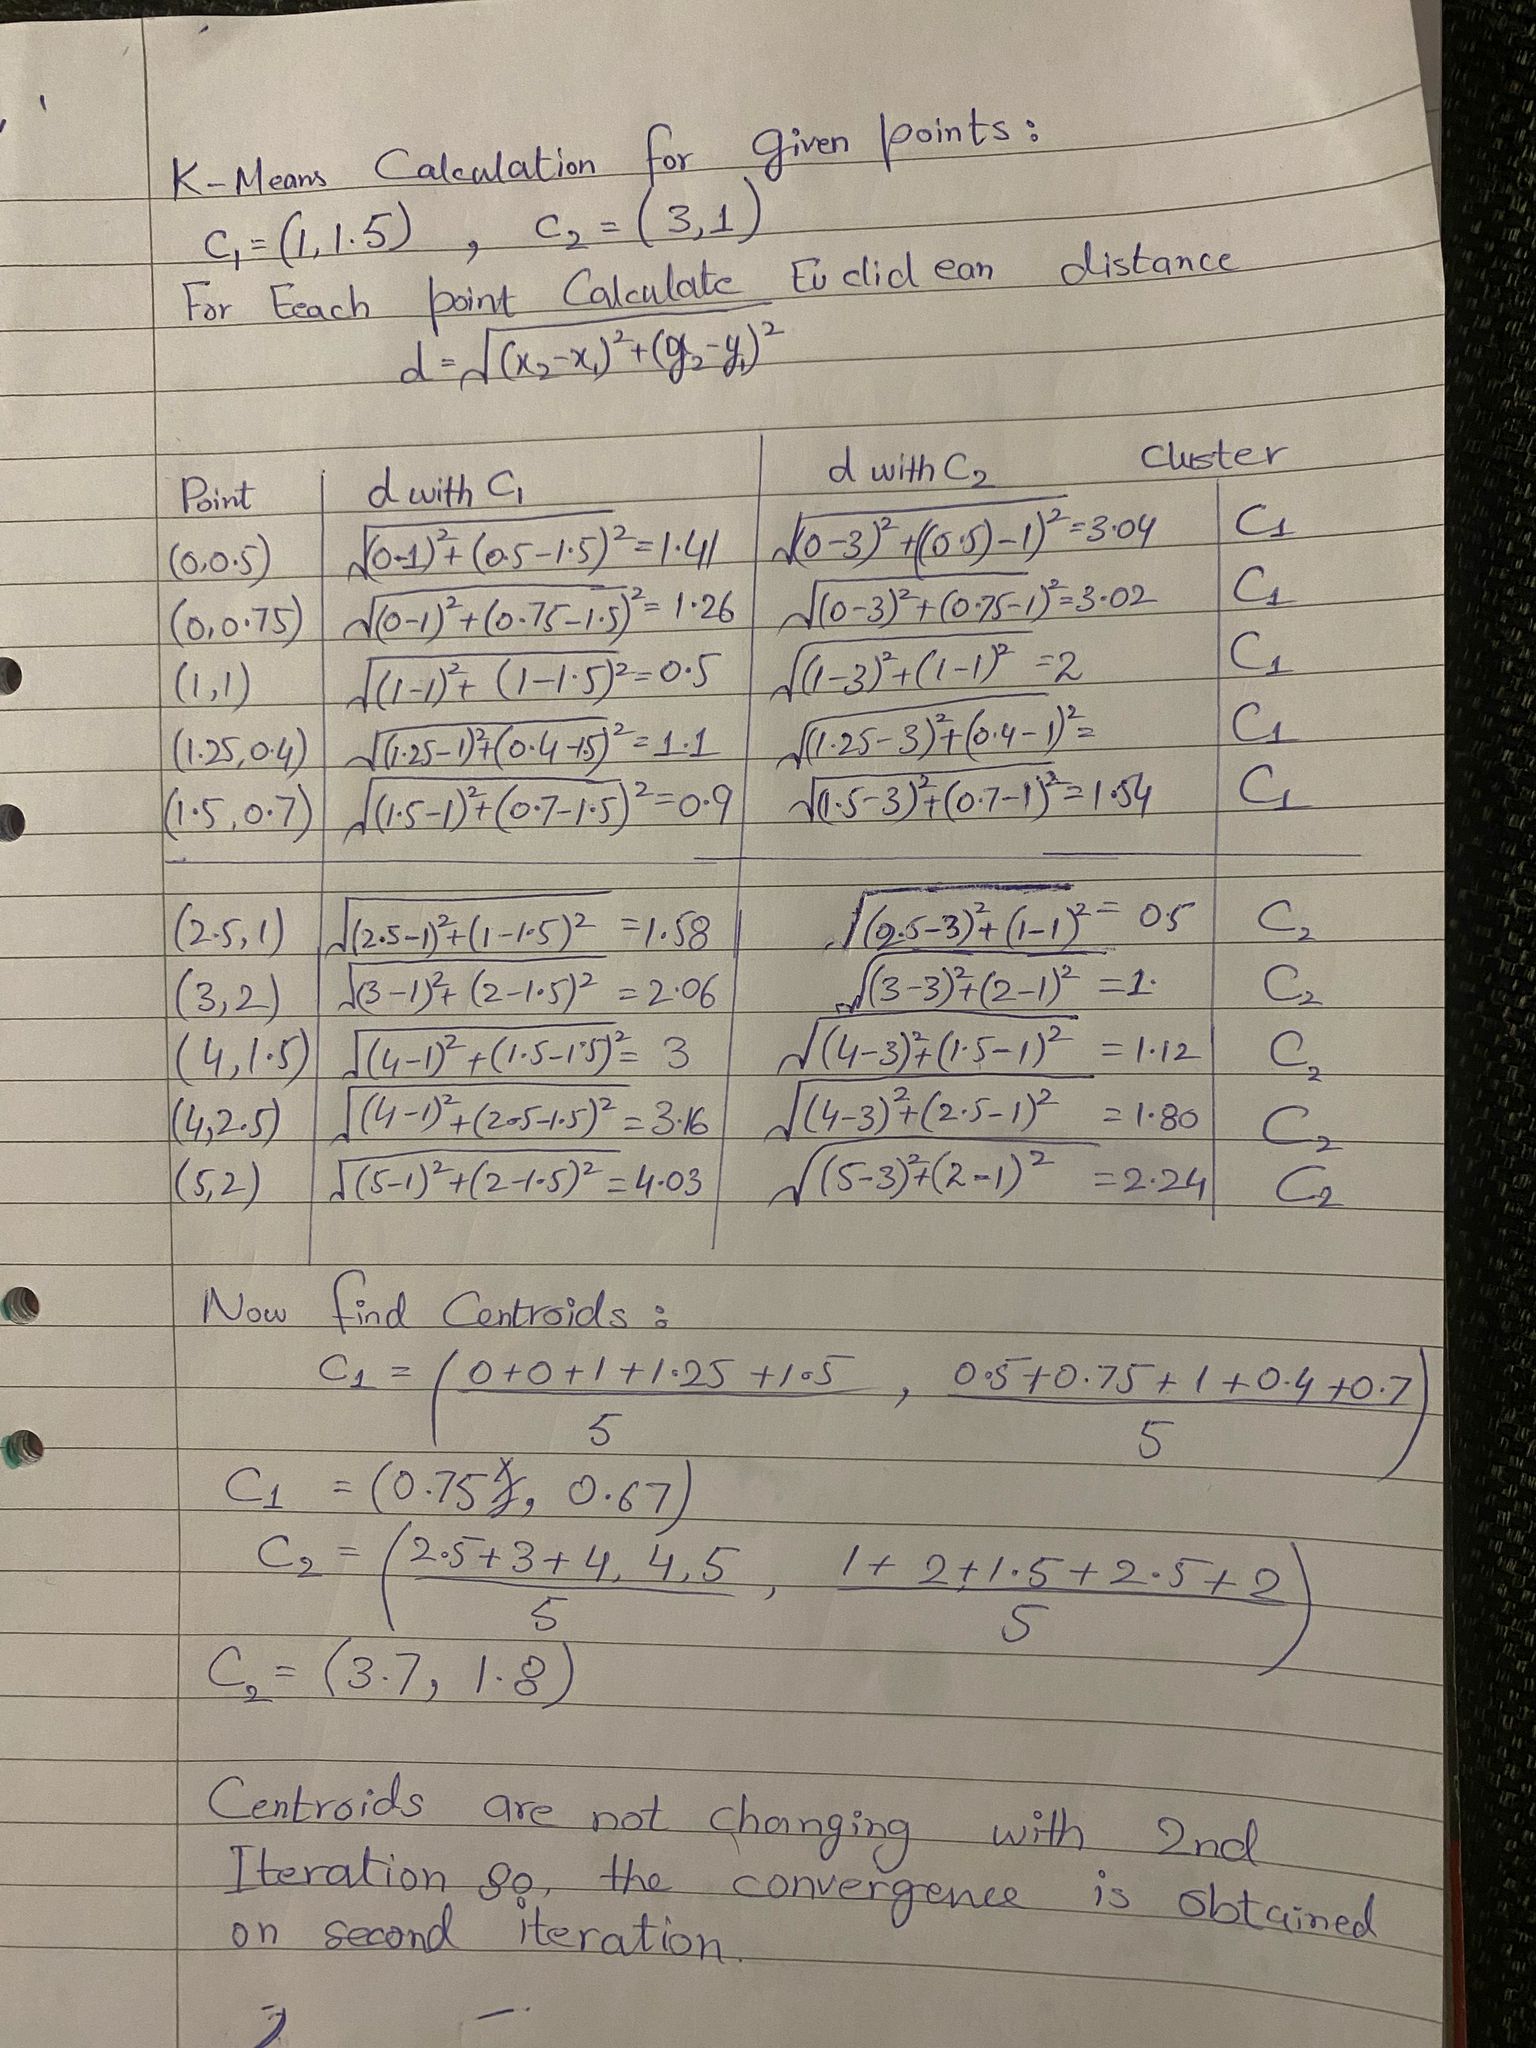 K-Means Calculation for given points:
C₁=(1,1.5) , C₂=(3,1)
For Eeach point Calculate Euclidean distance
d=√(x₂-x₁)²+(y₂-y₁)²
Point d with C₁ d with C₂ Cluster
(0,0.5) √(0-1)²+(0.5-1.5)²=1.41 √(0-3)²+((0.5)-1)²=3.04 C1
(0,0.75) √(0-1)²+(0.75-1.5)²=1.26 √(0-3)²+(0.75-1)²=3.02 C1
(1,1) √(1-1)²+(1-1.5)²=0.5 √(1-3)²+(1-1)²=2 C1
(1.25,0.4) √(1.25-1)²+(0.4-1.5)²=1.1 √(1.25-3)²+(0.4-1)²= C1
(1.5,0.7) √(1.5-1)²+(0.7-1.5)²=0.9 √(1.5-3)²+(0.7-1)²=1.54 C1
(2.5,1) √(2.5-1)²+(1-1.5)²=1.58 √(2.5-3)²+(1-1)²=0.5 C₂
(3,2) √(3-1)²+(2-1.5)²=2.06 √(3-3)²+(2-1)²=1. C₂
(4,1.5) √(4-1)²+(1.5-1.5)²=3 √(4-3)²+(1.5-1)²=1.12 C₂
(4,2.5) √(4-1)²+(2.5-1.5)²=3.16 √(4-3)²+(2.5-1)²=1.80 C₂
(5,2) √(5-1)²+(2-1.5)²=4.03 √(5-3)²+(2-1)²=2.24 C₂
Now find Centroids:
C1 = (0+0+1+1.25+1.5 , 0.5+0.75+1+0.4+0.7)
5 5
C1 = (0.75, 0.67)
C₂ = (2.5+3+4, 4,5 , 1+2+1.5+2.5+2)
5 5
C₂ = (3.7, 1.8)
Centroids are not changing with 2nd
Iteration so, the convergence is obtained
on second iteration.